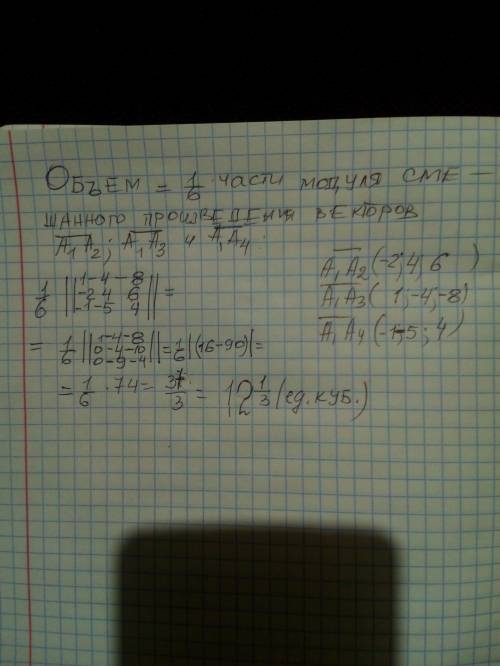 Объем = 1/6 части модуля сме-
шанного произведения векторов
A₁A₂; A₁A₃ и A₁A₄.
A₁A₂(-2; 4; 6)
A₁A₃(1; -4; -8)
A₁A₄(-1; -5; 4)
1/6 ||1 -4 -8
-2 4 6
-1 -5 4|| =
= 1/6 ||1 -4 -8
0 -4 -10
0 -9 -4|| = 1/6 |(16-90)| =
= 1/6 · 74 = 37/3 = 12 1/3 (ед. куб.)